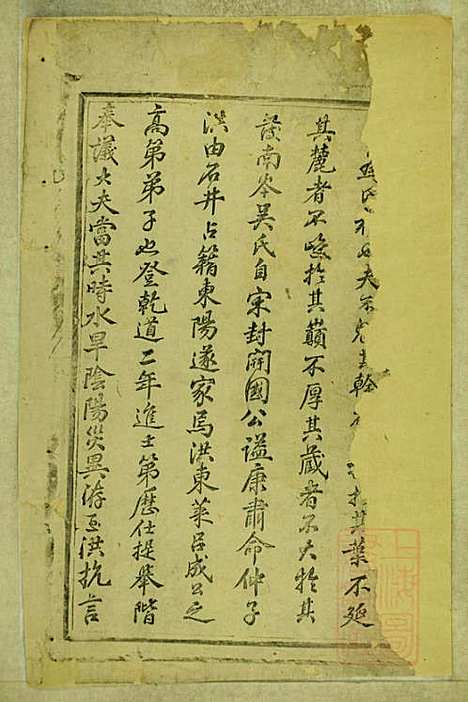 夫不先其幹不
於其葉不延
其麓者不峻於其巔不厚其藏者不大於其
發南岑吳氏自宋封開國公謚康肅命仲子
洪由石井占籍東陽遂家焉洪東萊呂成公之
高第弟子也登乾道二年進士第歷仕提舉階
奉議大夫當其時水旱陰陽災異洊至洪抗言